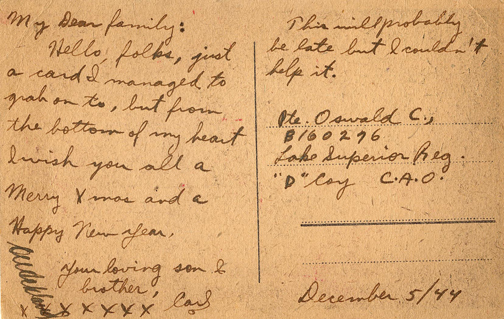 My Dear family:
Hello, folks, just
a card I managed to
grab on to, but from
the bottom of my heart
I wish you all a
Merry Xmas and a
Happy New Year.
Your loving son &
brother,
X X X X X X X Carl
This will probably
be late but I couldn't
help it.
Pte. Oswald C.,
B160296
Lake Superior Reg.
"D" Coy C.A.O.
December 5/44